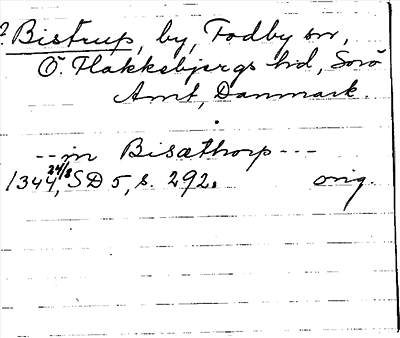 Bistrup, by, Fodby sn,
Ö. Flakkebjergs hd, Sorö
Amt, Danmark.
--in Bisæthorp---
1344 24/8, SD 5, s. 292. orig.